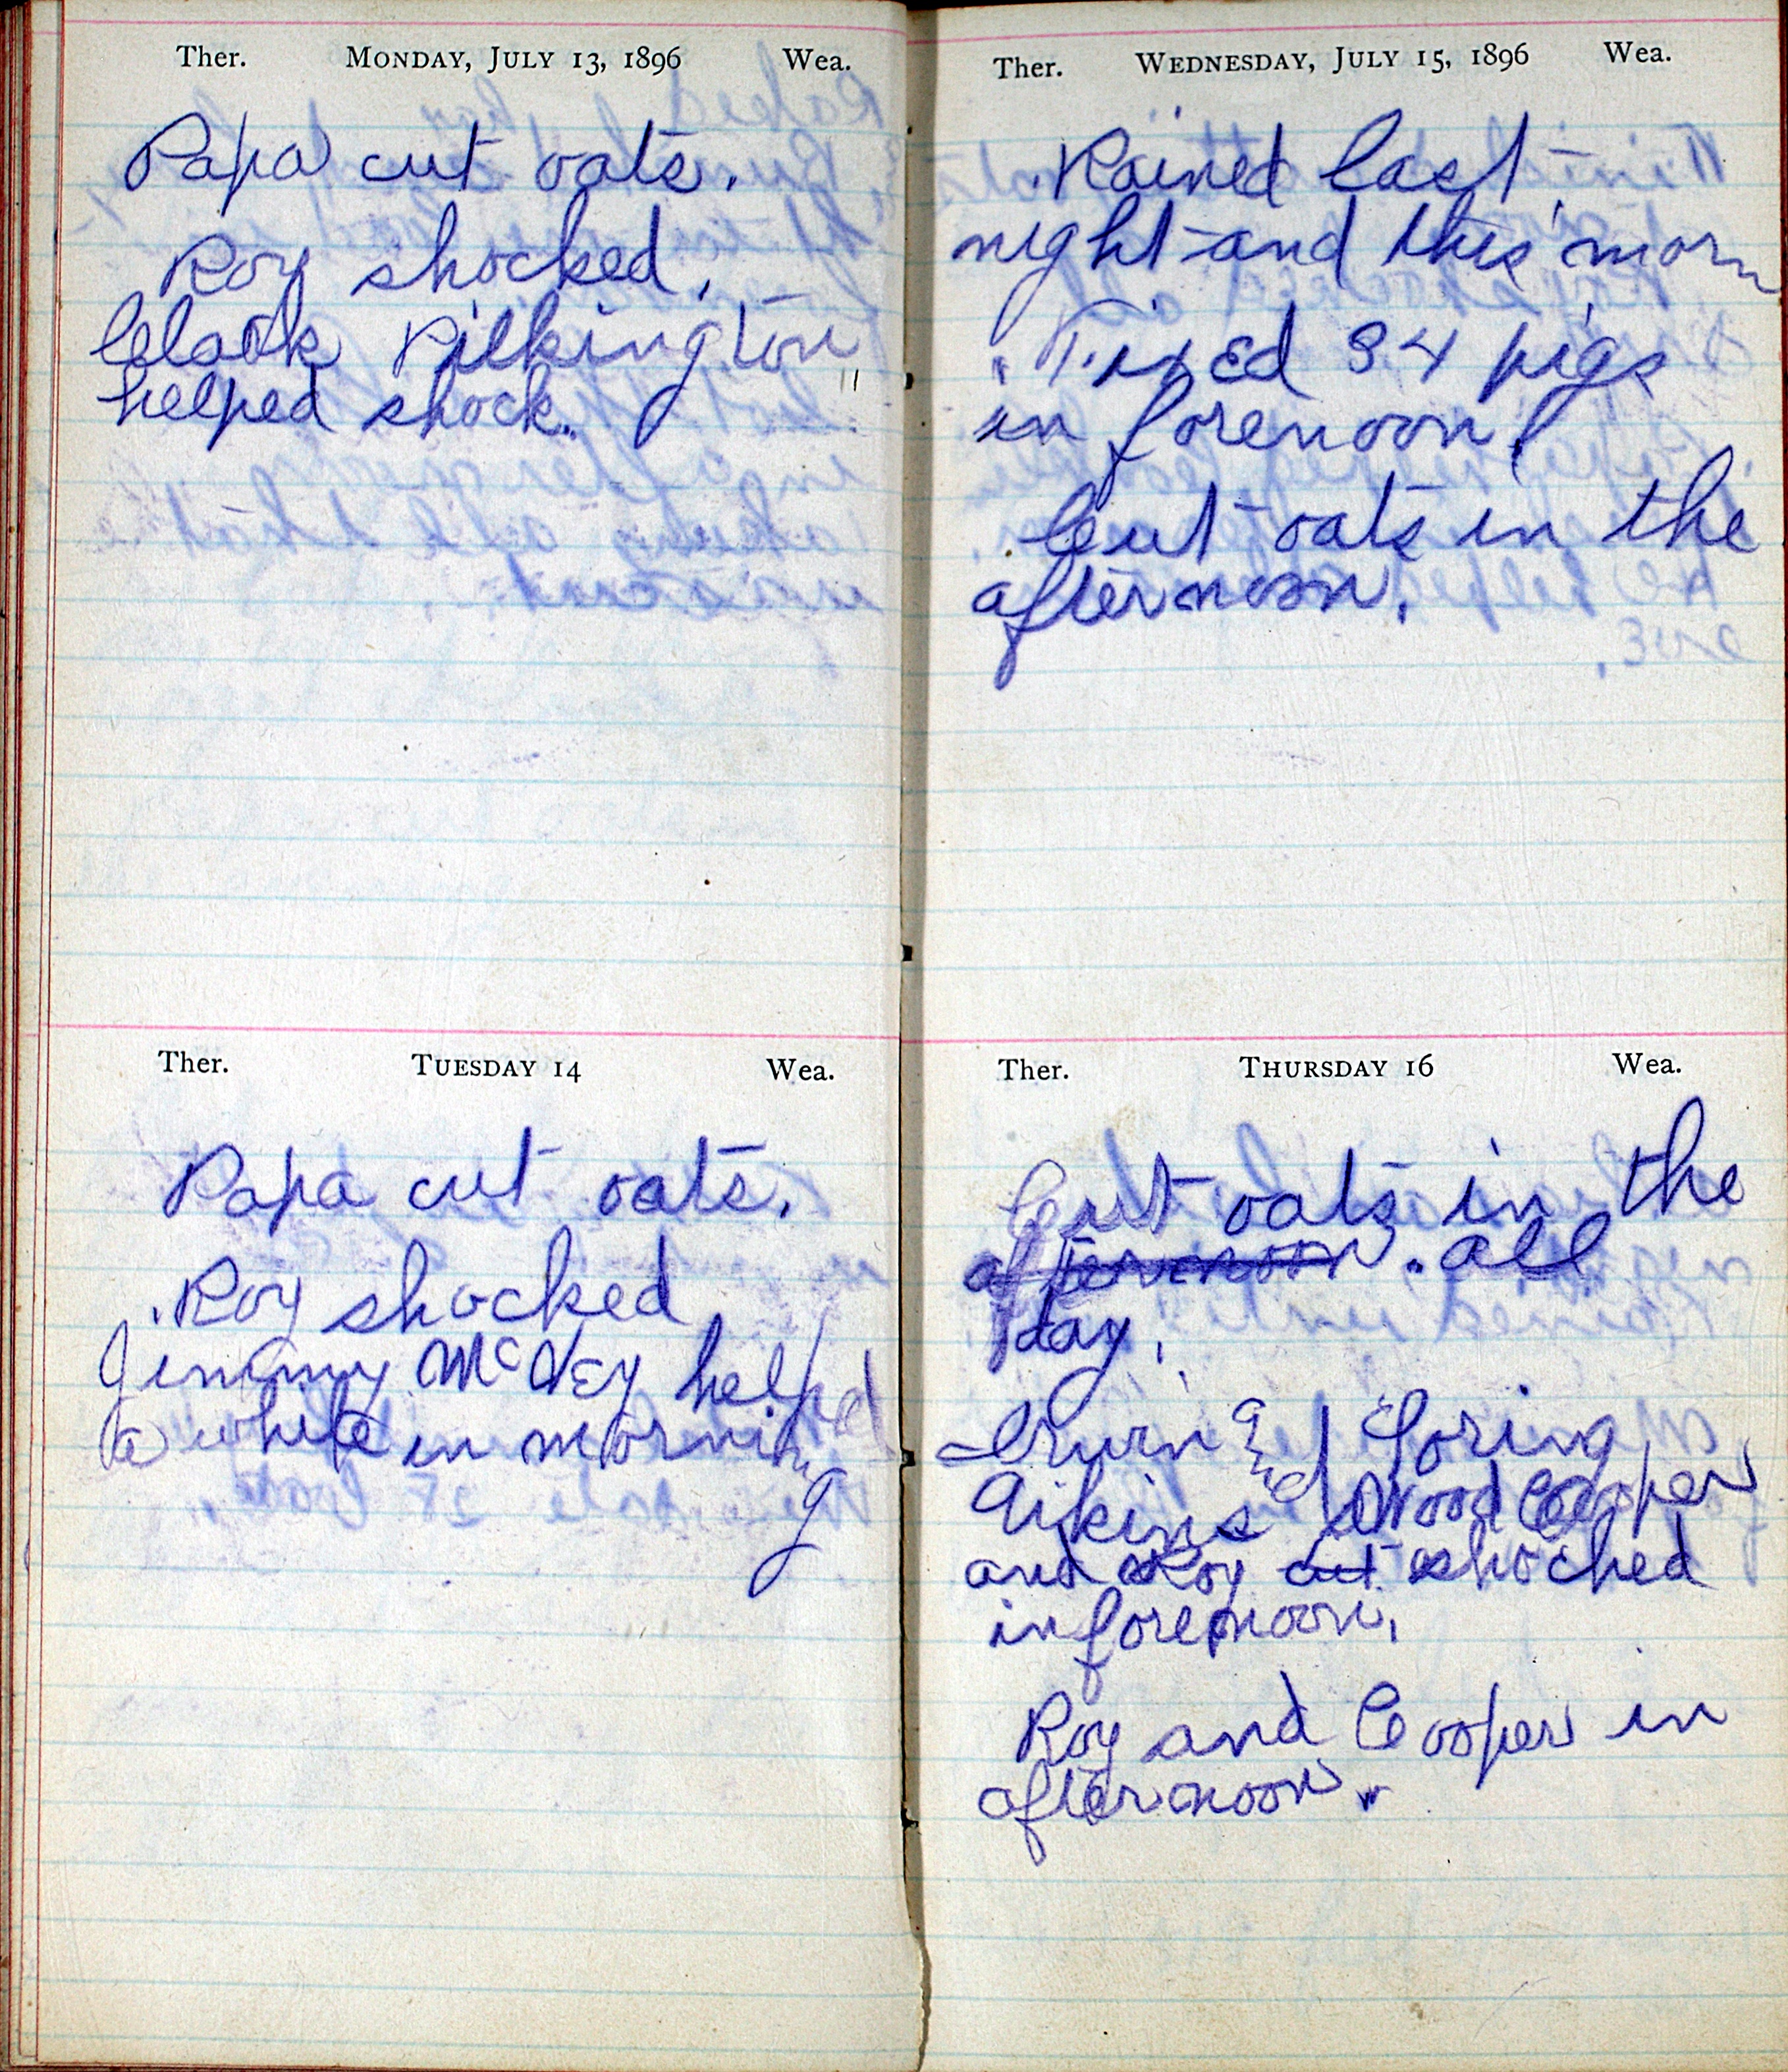 Ther. MONDAY, JULY 13, 1896 Wea.
Papa cut oats.
Roy shocked.
Clark Pilkington
helped shock.
Ther. TUESDAY 14 Wea.
Papa cut oats.
Roy shocked
Jimmy McVey helped
a while in morning
Ther. WEDNESDAY, JULY 15, 1896 Wea.
Rained last
night and this morn
Fixed 34 pigs
in forenoon.
Cut oats in the
afternoon.
Ther. THURSDAY 16 Wea.
Cut oats in the
afternoon. all
day.
Irwin and Loring
Aikins Wood Cooper
and Roy cut shocked
in forenoon.
Roy and Cooper in
afternoon.